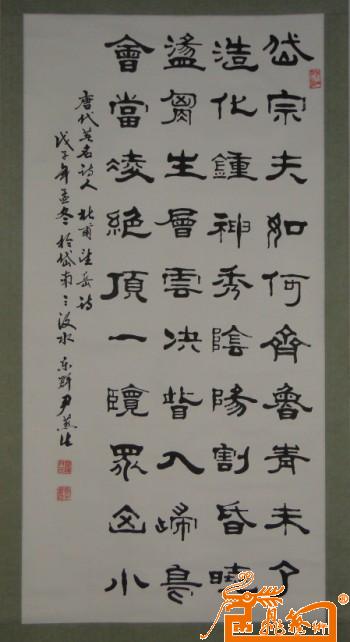 岱宗夫如何齊魯青未了
造化鍾神秀陰陽割昏曉
盪胷生層雲決眥入歸鳥
會當凌絕頂一覽眾山小
唐代英名詩人杜甫望岳詩
戊子年孟冬於岱南汶水